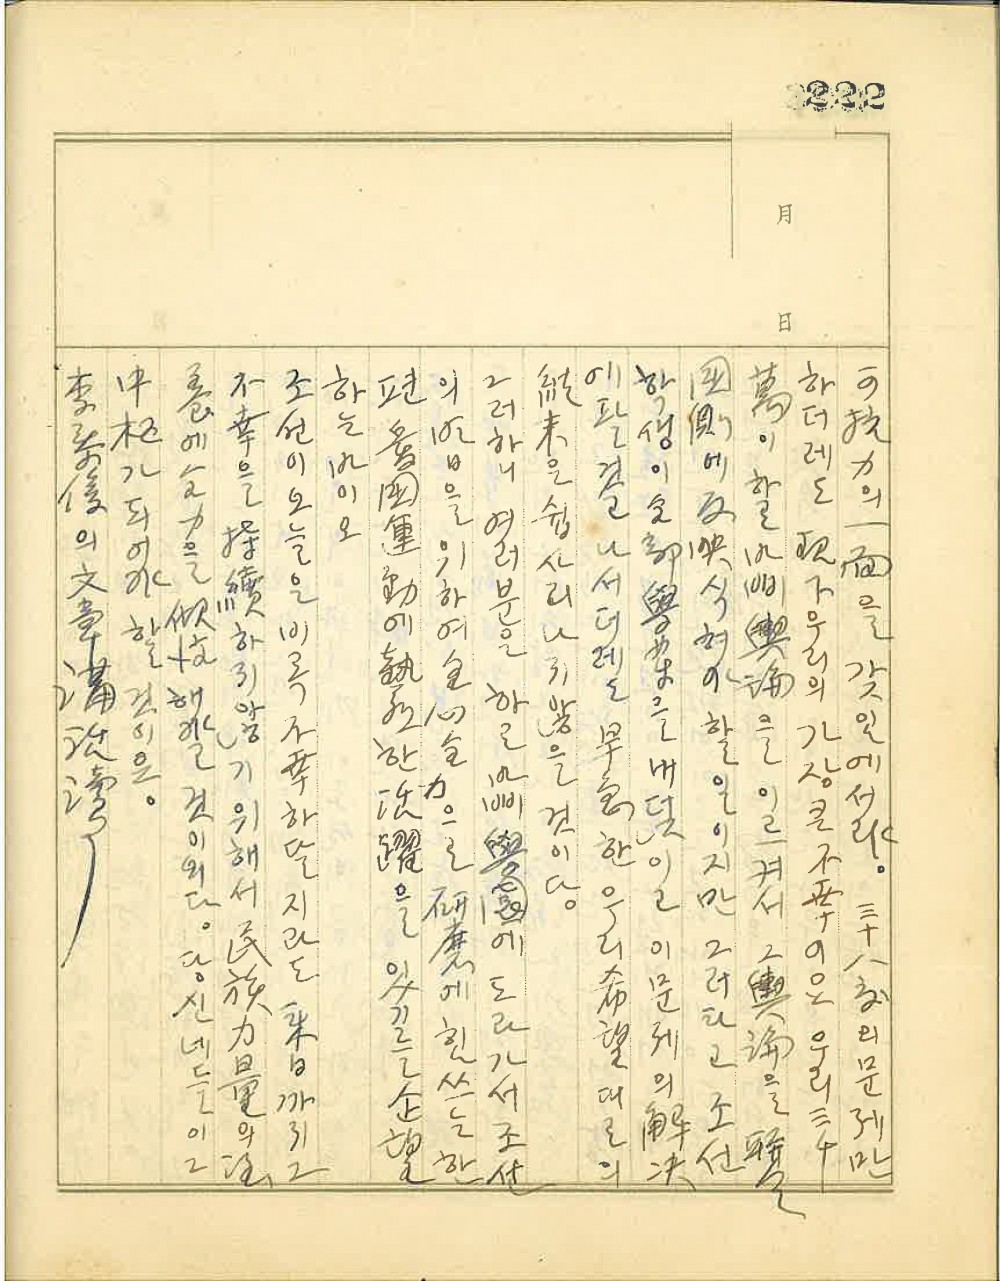 222
月
日
可抗力의 一面을 갖잇에서랴。 三十八度의 문제만
하더래도 現下 우리의 가장 큰 不幸이은 우리 三千
萬이 할바 輿論을 이르켜서 그 輿論을 聯
國側에 反映식혀야 할 일이지만 그러타고 조선
학생이 全部 學業을 내던이고 이 문제의 解决
에 판결 나서더래도 早急한 우리 希望대로의
結末은 쉽사리 나지 않을 것이다。
그러하니 여러분은 하로 學園에 도라가서 조선
의 을 위하여 全心全力으로 研磨에 힘쓰는 한
편 愛國運動에 熱烈한 活躍을 잇기를 企望
하는 바이오
조선이 오늘은 비록 不幸하달지라도 來日까지 그
不幸을 持續하지 않기 위해서 民族力量의 涵
養에 全力을 傾 해야할 것이외다。 당신네들이 그
中樞가 되어야 할 것이은。
李泰俊의 文章講話讀了